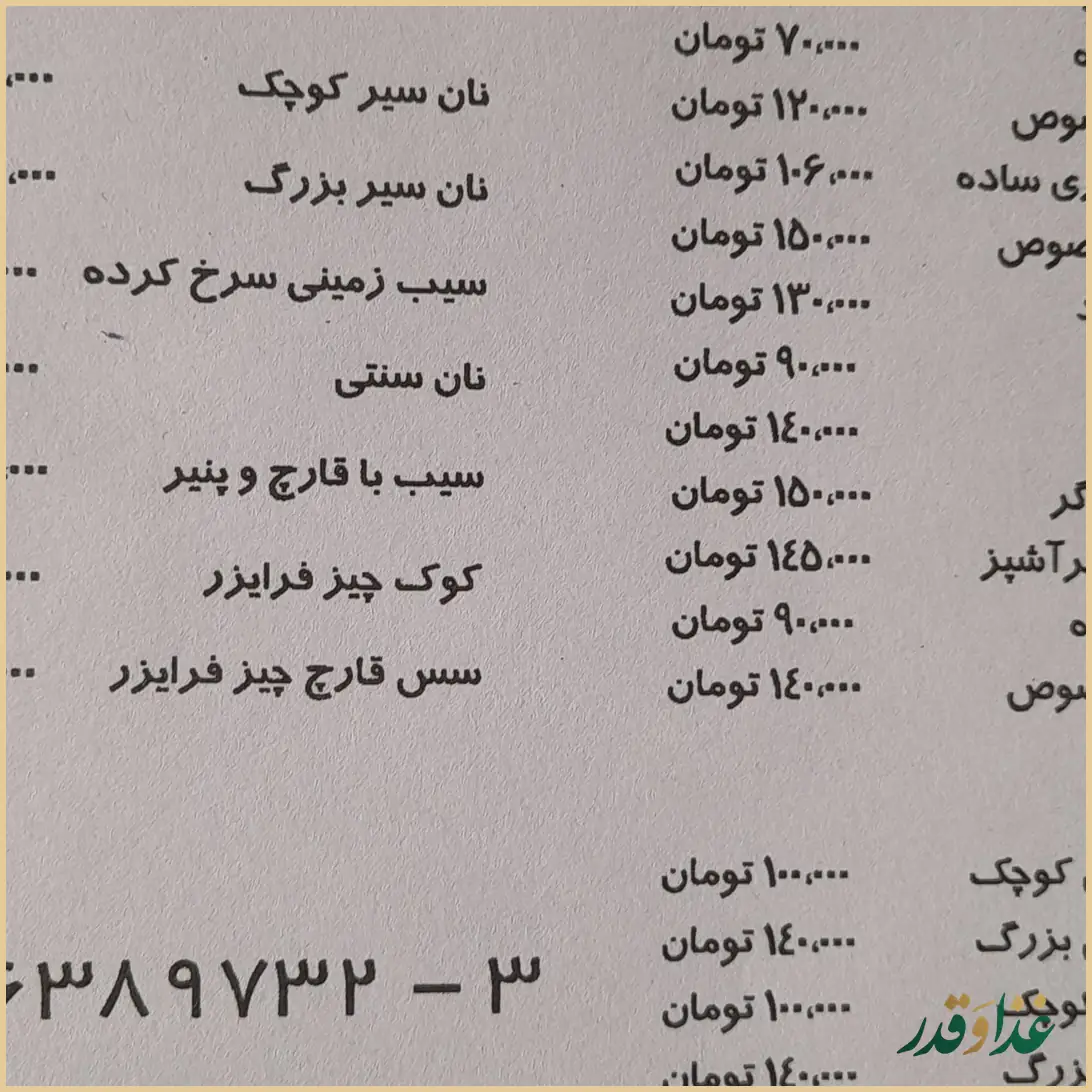 ۷۰،۰۰۰ تومان
۱۲۰،۰۰۰ تومان
ساده ۱۰۶،۰۰۰ تومان
۱۵۰،۰۰۰ تومان
۱۳۰،۰۰۰ تومان
۹۰،۰۰۰ تومان
۱۴۰،۰۰۰ تومان
۱۵۰،۰۰۰ تومان
۱۴۵،۰۰۰ تومان
۹۰،۰۰۰ تومان
۱۴۰،۰۰۰ تومان
کوچک ۱۰۰،۰۰۰ تومان
بزرگ ۱۴۰،۰۰۰ تومان
۱۰۰،۰۰۰ تومان
۱۴۰،۰۰۰ تومان
نان سیر کوچک
نان سیر بزرگ
سیب زمینی سرخ کرده
نان سنتی
سیب با قارچ و پنیر
کوک چیز فرایزر
سس قارچ چیز فرایزر
۳۸۹۷۳۲ - ۳
غذا و قدر